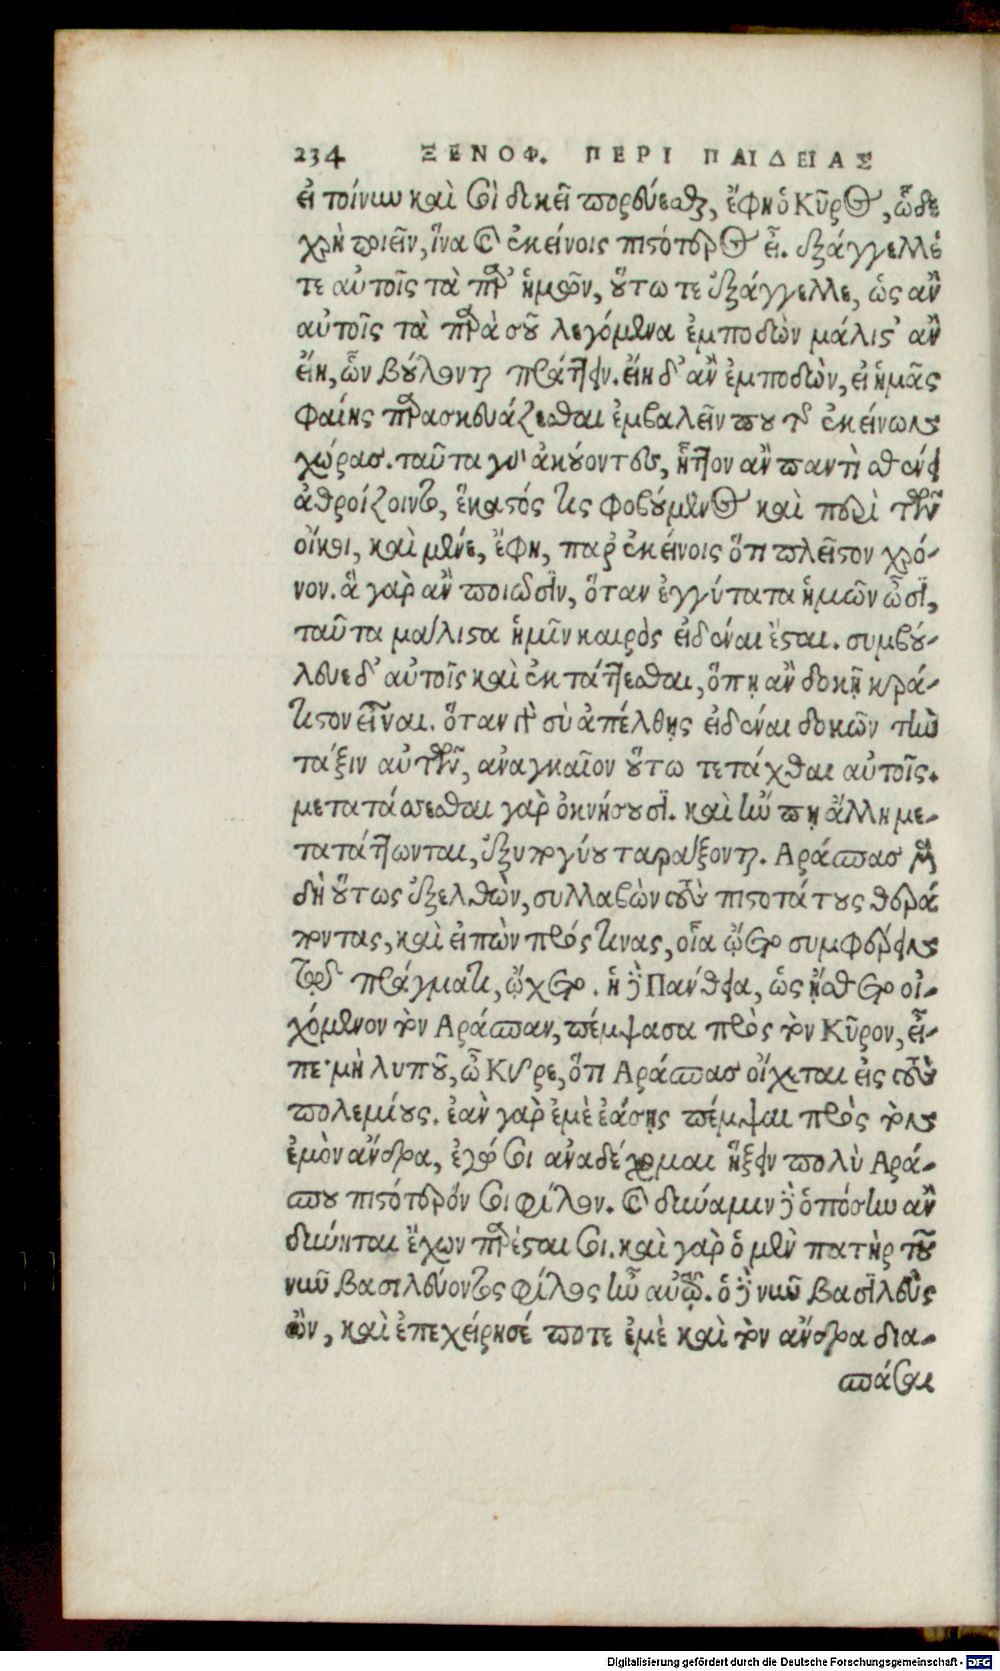 234 ΞΕΝΟΦ. ΠΕΡΙ ΠΑΙΔΕΙΑΣ
εἰ τοίνυν καὶ σοὶ δοκεῖ πορεύεσθαι, ἔφη ὁ Κῦρος, ὧδε
χρὴ ποιεῖν, ἵνα καὶ ἐκείνοις πιστότερος εἶ. ἐξάγγελλέ
τε αὐτοῖς τὰ παρ' ἡμῶν, οὕτω τε ἐξάγγελλε, ὡς ἂν
αὐτοῖς τὰ παρὰ σοῦ λεγόμενα ἐμποδὼν μάλιστ' ἂν
εἴη, ὧν βούλονται πράττειν. εἴη δ' ἂν ἐμποδὼν, εἰ ἡμᾶς
φαίης παρασκευάζεσθαι ἐμβαλεῖν που τῆς ἐκείνων
χώρας. ταῦτα γὰρ ἀκούοντες, ἧττον ἂν παντὶ σθένει
ἀθροίζοιντο, ἕκαστός τις φοβούμενος καὶ περὶ τῶν
οἴκοι, καὶ μένε, ἔφη, παρ' ἐκείνοις ὅτι πλεῖστον χρό-
νον. ἃ γὰρ ἂν ποιῶσιν, ὅταν ἐγγύτατα ἡμῶν ὦσι,
ταῦτα μάλιστα ἡμῖν καιρὸς εἰδέναι ἔσται. συμβού-
λευε δ' αὐτοῖς καὶ ἐκτάττεσθαι, ὅπῃ ἂν δοκῇ κρά-
τιστον εἶναι. ὅταν γὰρ σὺ ἀπέλθῃς εἰδέναι δοκῶν τὴν
τάξιν αὐτῶν, ἀναγκαῖον οὕτω τετάχθαι αὐτοῖς.
μετατάσσεσθαι γὰρ ὀκνήσουσι. καὶ ἢν πῃ ἄλλη με-
τατάττωνται, ἐξυπογύου ταράξονται. Αράσπας μὲν
δὴ οὕτως ἐξελθὼν, συλλαβὼν τοὺς πιστοτάτους θερά
ποντας, καὶ εἰπὼν πρός τινας, οἷα ᾤετο συμφέρειν
τῷ πράγματι, ᾤχετο. ἡ δὲ Πανθεία, ὡς ᾔσθετο οἰ-
χόμενον τὸν Αράσπαν, πέμψασα πρὸς τὸν Κῦρον, εἶ-
πε· μὴ λυποῦ, ὦ Κῦρε, ὅτι Αράσπας οἴχεται εἰς τοὺς
πολεμίους. ἐὰν γὰρ ἐμὲ ἐάσῃς πέμψαι πρὸς τὸν
ἐμὸν ἄνδρα, ἐγώ σοι ἀναδέχομαι ἥξειν πολὺ Αρά-
σπου πιστότερόν σοι φίλον. καὶ δύναμιν δὲ ὁπόσην ἂν
δύνηται ἔχων παρέσται σοι. καὶ γὰρ ὁ μὲν πατὴρ τοῦ
νῦν βασιλεύοντος φίλος ἦν αὐτῷ. ὁ δὲ νῦν βασιλεὺς
ὢν, καὶ ἐπεχείρησέ ποτε ἐμὲ καὶ τὸν ἄνδρα δια-
σπάσαι
Digitalisierung gefördert durch die Deutsche Forschungsgemeinschaft - DFG